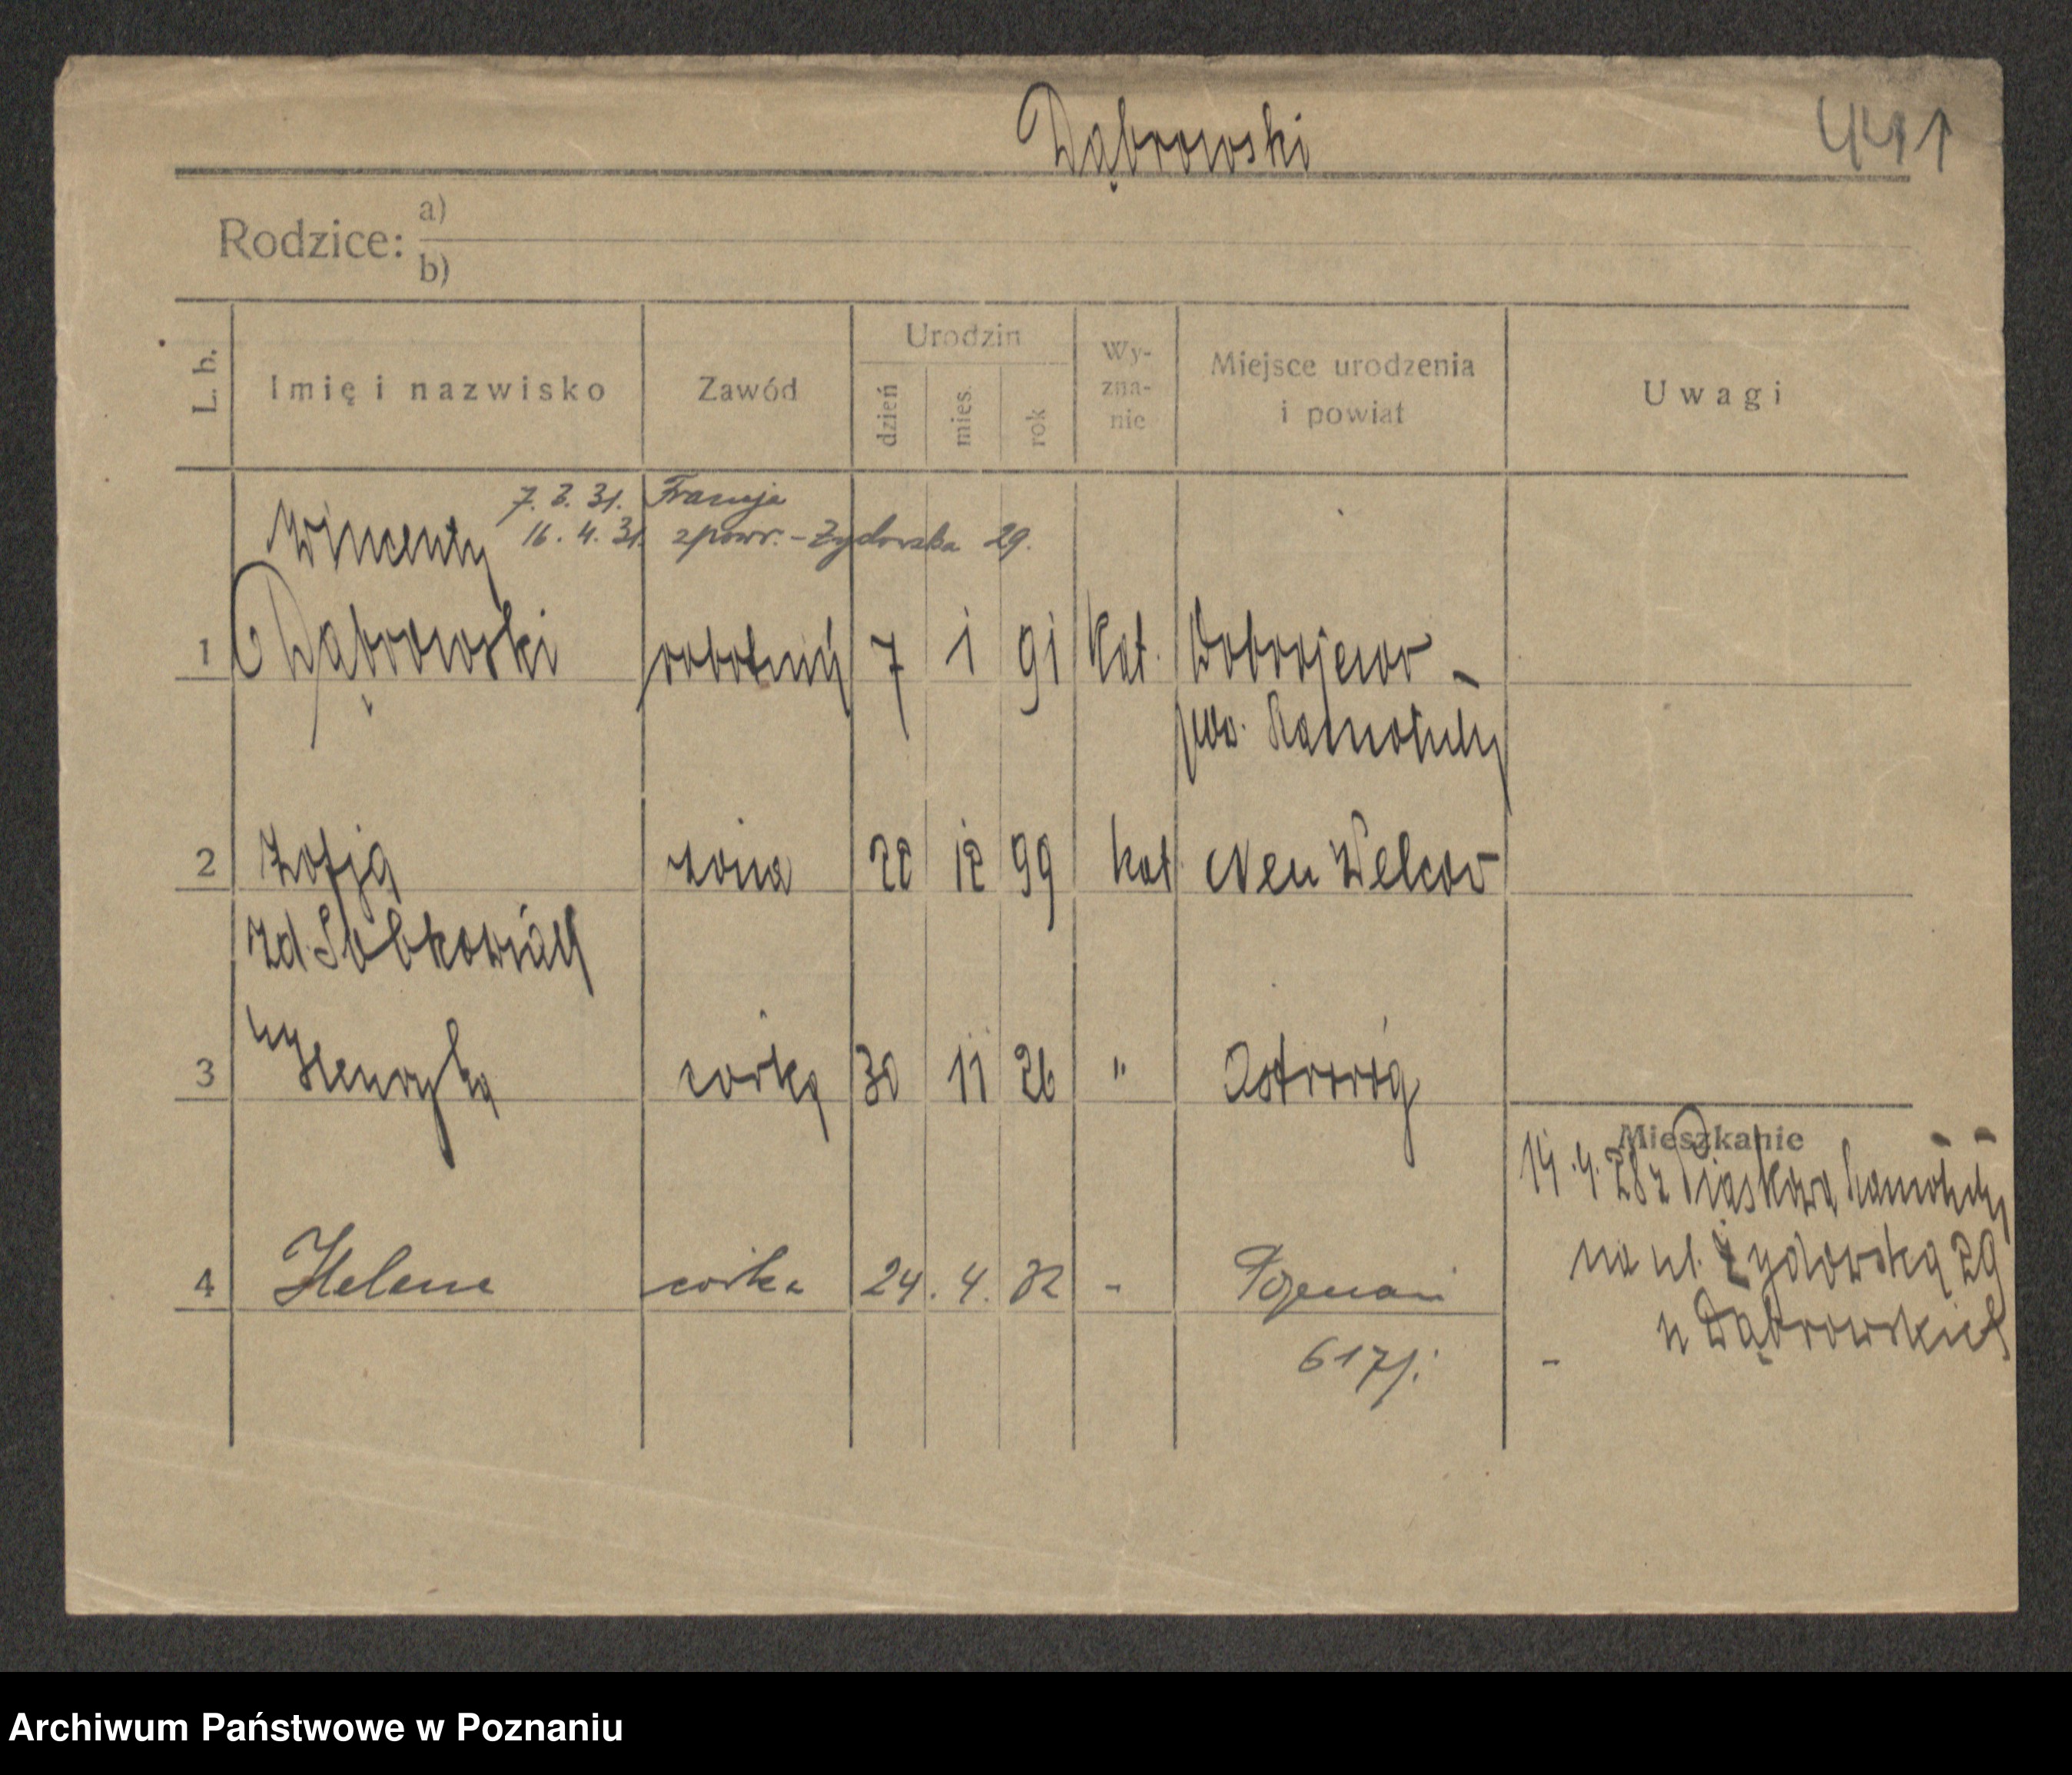 Dąbrowski
Rodzice: a)
b)
L. b.
Imię i nazwisko
Zawód
Urodzin
dzień
mies.
rok
Wy-
zna-
nie
Miejsce urodzenia
i powiat
Uwagi
7. 3. 31. Francja
16. 4. 31. zpowr. - Żydowska 29.
Wincenty
1 Dąbrowski robotnik 7 1 91 kat. Dobrojewo -
pow. Szamotuły
2 Zofja żona 22 12 99 kat. Neu Welcow
zd. Sobkowiak
3 Henryka córka 30 11 26 " Ostroróg
Mieszkanie
14.4.28 z Piaskowa Szamotuły
na ul. Żydowską 29
u Dąbrowskich
4 Helena córka 24. 4. 32 - Poznań
Archiwum Państwowe w Poznaniu